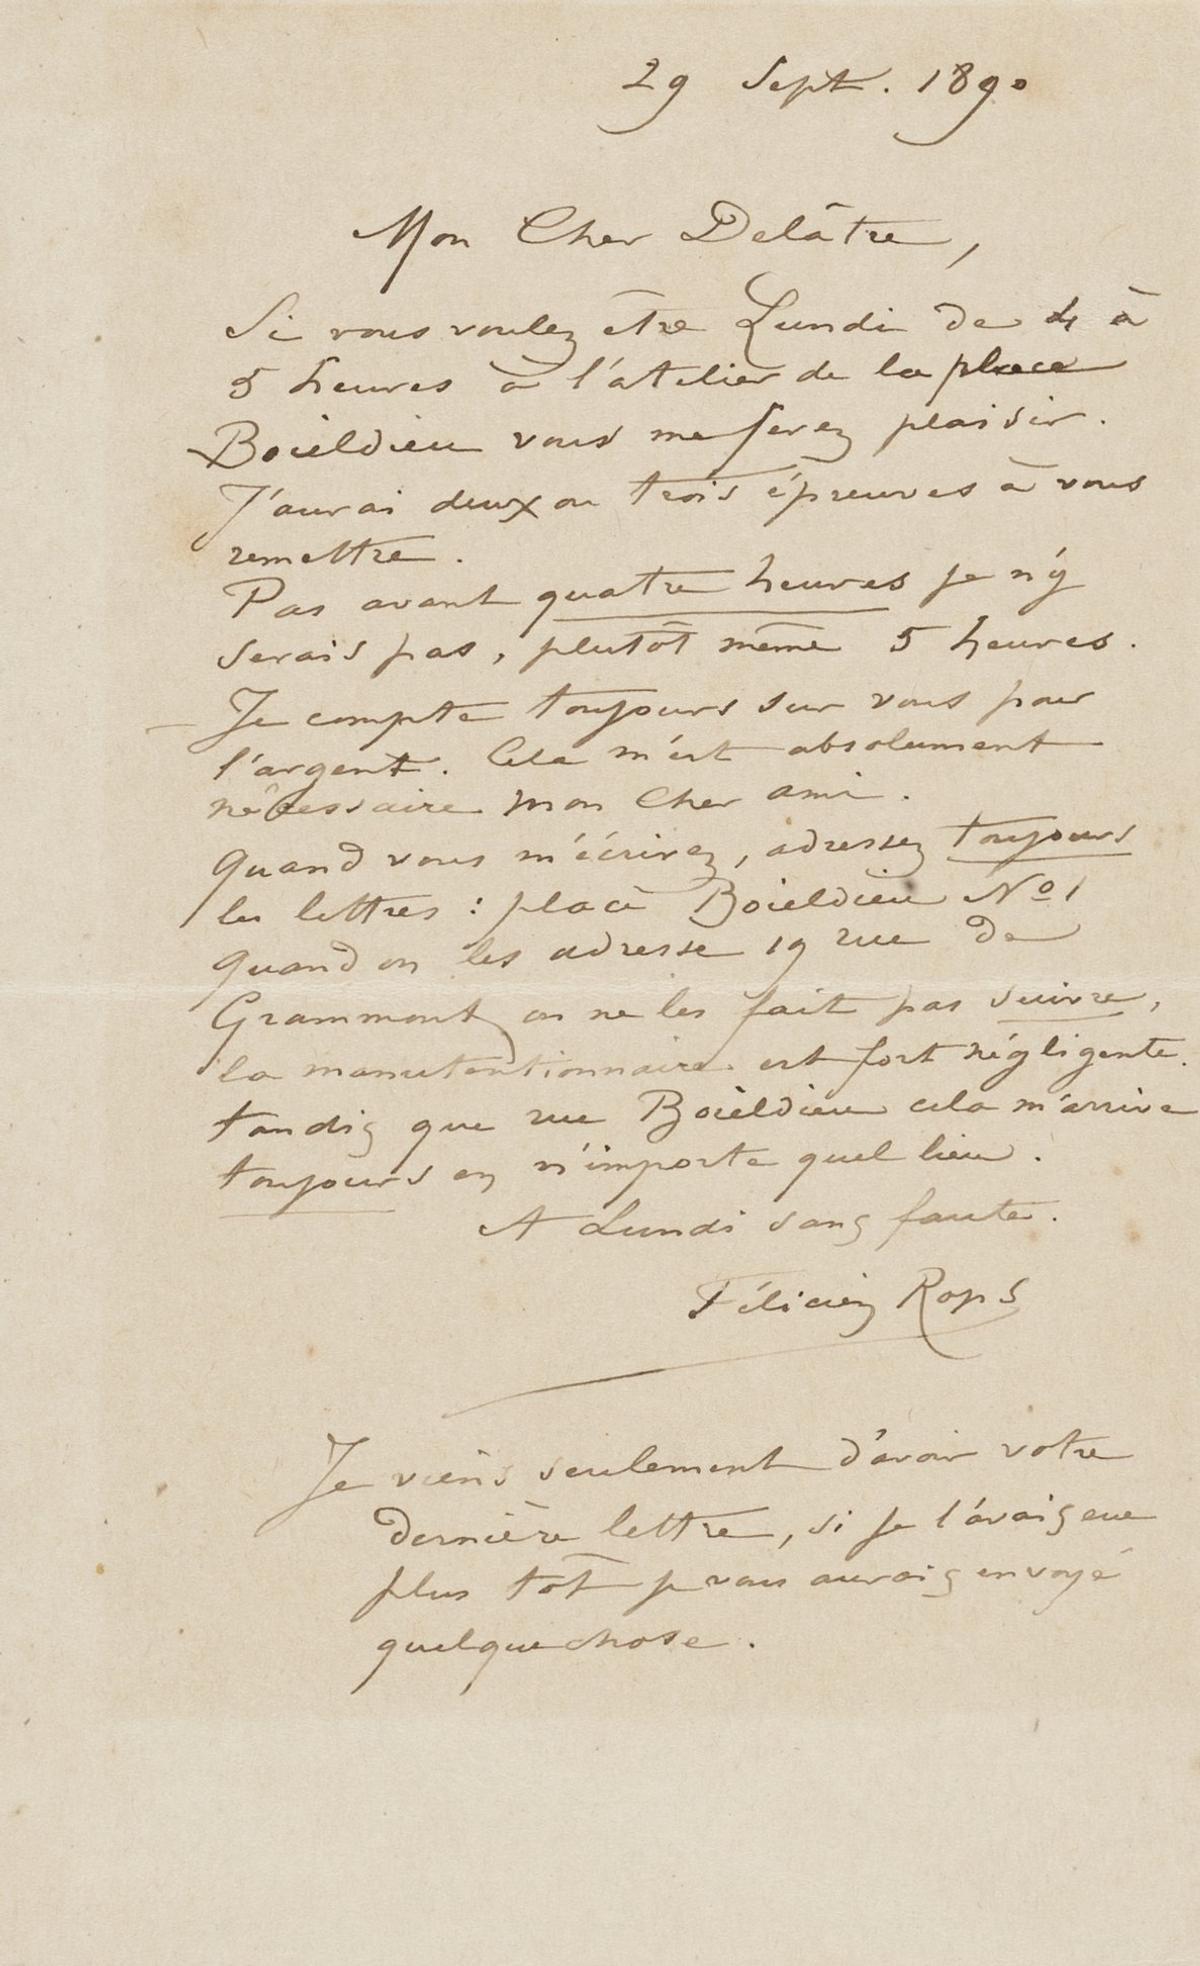 29 Sept. 1890
Mon Cher Delâtre,
Si vous voulez être Lundi de 4 à
5 heures à l'atelier de la place
Boieldieu vous me ferez plaisir.
J'aurai deux ou trois épreuves à vous
remettre.
Pas avant quatre heures je n'y
serais pas, plutôt même 5 heures.
Je compte toujours sur vous pour
l'argent. Cela m'est absolument
nécessaire mon Cher ami.
Quand vous m'écrivez, adressez toujours
les lettres : place Boieldieu No 1
Quand on les adresse 19 rue de
Grammont, on ne les fait pas suivre,
la manutentionnaire est fort négligente.
tandis que rue Boieldieu cela m'arrive
toujours en n'importe quel lieu.
A Lundi sans faute.
Félicien Rops
Je viens seulement d'avoir votre
dernière lettre, si je l'avais eue
plus tôt je vous aurais envoyé
quelque chose.